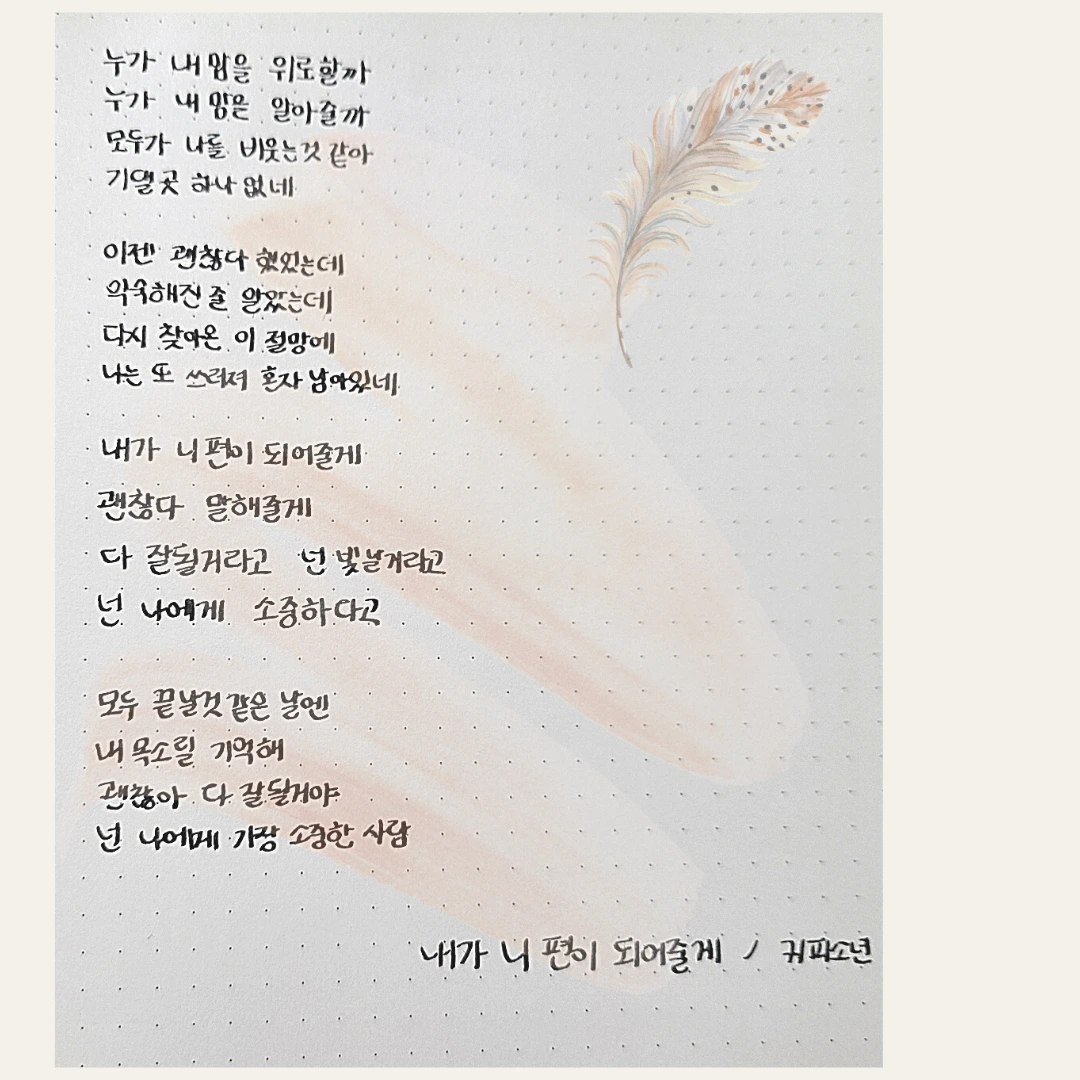 누가 내 맘을 위로할까
누가 내 맘을 알아줄까
모두가 나를 비웃는것 같아
기댈 곳 하나 없네
이젠 괜찮다 했었는데
익숙해진 줄 알았는데
다시 찾아온 이 절망에
나는 또 쓰러져 혼자 남아있네
내가 니 편이 되어줄게
괜찮다 말해줄게
다 잘될거라고 넌 빛날거라고
넌 나에게 소중하다고
모두 끝날것 같은 날엔
내 목소릴 기억해
괜찮아 다 잘될거야
넌 나에게 가장 소중한 사람
내가 니 편이 되어줄게 / 커피소년